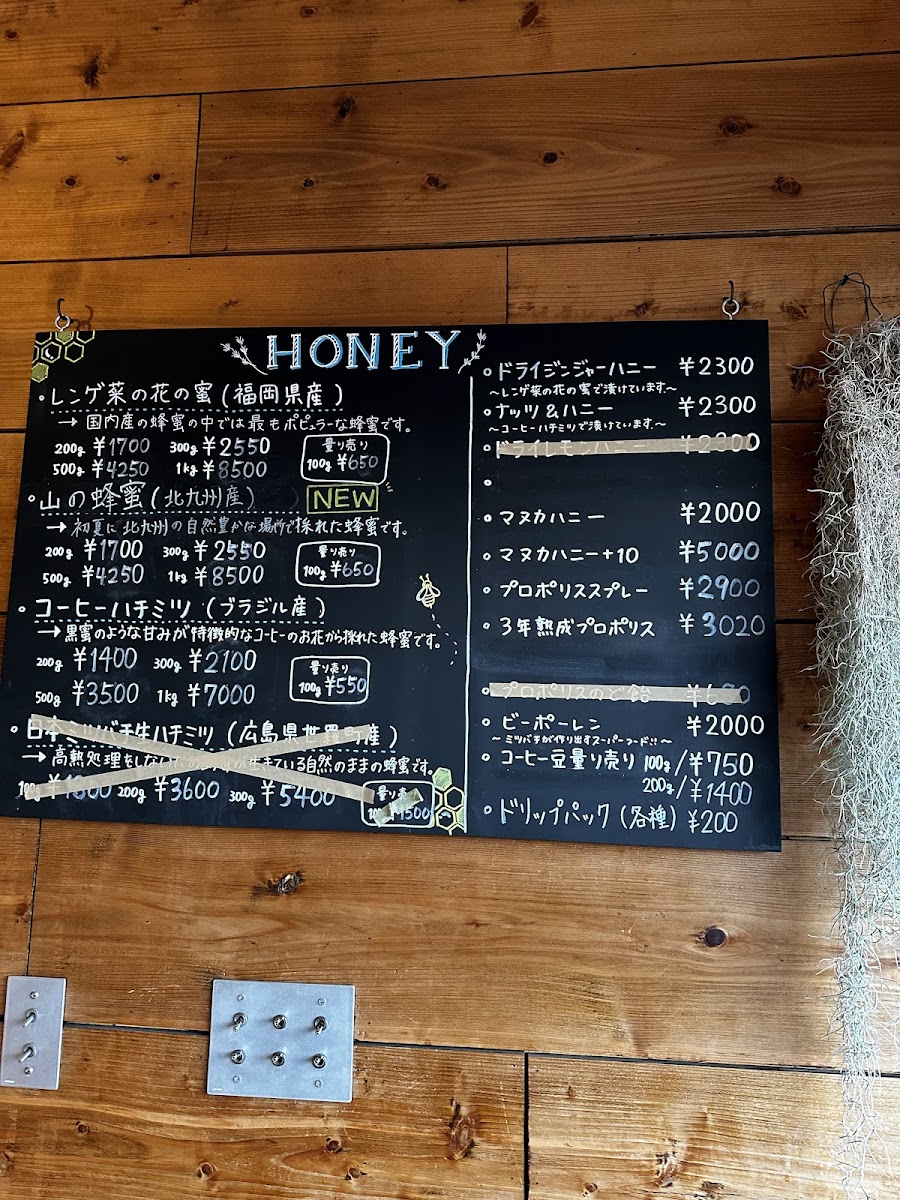 HONEY
・レンゲ菜の花の蜜(福岡県産)
→ 国内産の蜂蜜の中では最もポピュラーな蜂蜜です。
200g ¥1700 300g ¥2550
500g ¥4250 1kg ¥8500
量り売り
100g ¥650
・山の蜂蜜(北九州産)
NEW
→ 初夏に北九州の自然豊かな場所で採れた蜂蜜です。
200g ¥1700 300g ¥2550
500g ¥4250 1kg ¥8500
量り売り
100g ¥650
・コーヒーハチミツ(ブラジル産)
→ 黒蜜のような甘みが特徴的なコーヒーのお花から採れた蜂蜜です。
200g ¥1400 300g ¥2100
500g ¥3500 1kg ¥7000
量り売り
100g ¥550
・日本ミツバチ生ハチミツ(広島県世羅町産)
→ 高熱処理をしない 生きている自然のままの蜂蜜です。
100g ¥1800 200g ¥3600 300g ¥5400
量り売
¥1500
・ドライジンジャーハニー ¥2300
〜レンゲ菜の花の蜜で漬けています。〜
・ナッツ&ハニー ¥2300
〜コーヒーハチミツで漬けています。〜
・ドライレモンハニー ¥2300
・マヌカハニー ¥2000
・マヌカハニー+10 ¥5000
・プロポリススプレー ¥2900
・3年熟成プロポリス ¥3020
・プロポリスのど飴
・ビーポーレン ¥2000
〜ミツバチが作り出すスーパーフード!!〜
・コーヒー豆量り売り 100g/¥750
200g/¥1400
・ドリップパック(各種) ¥200